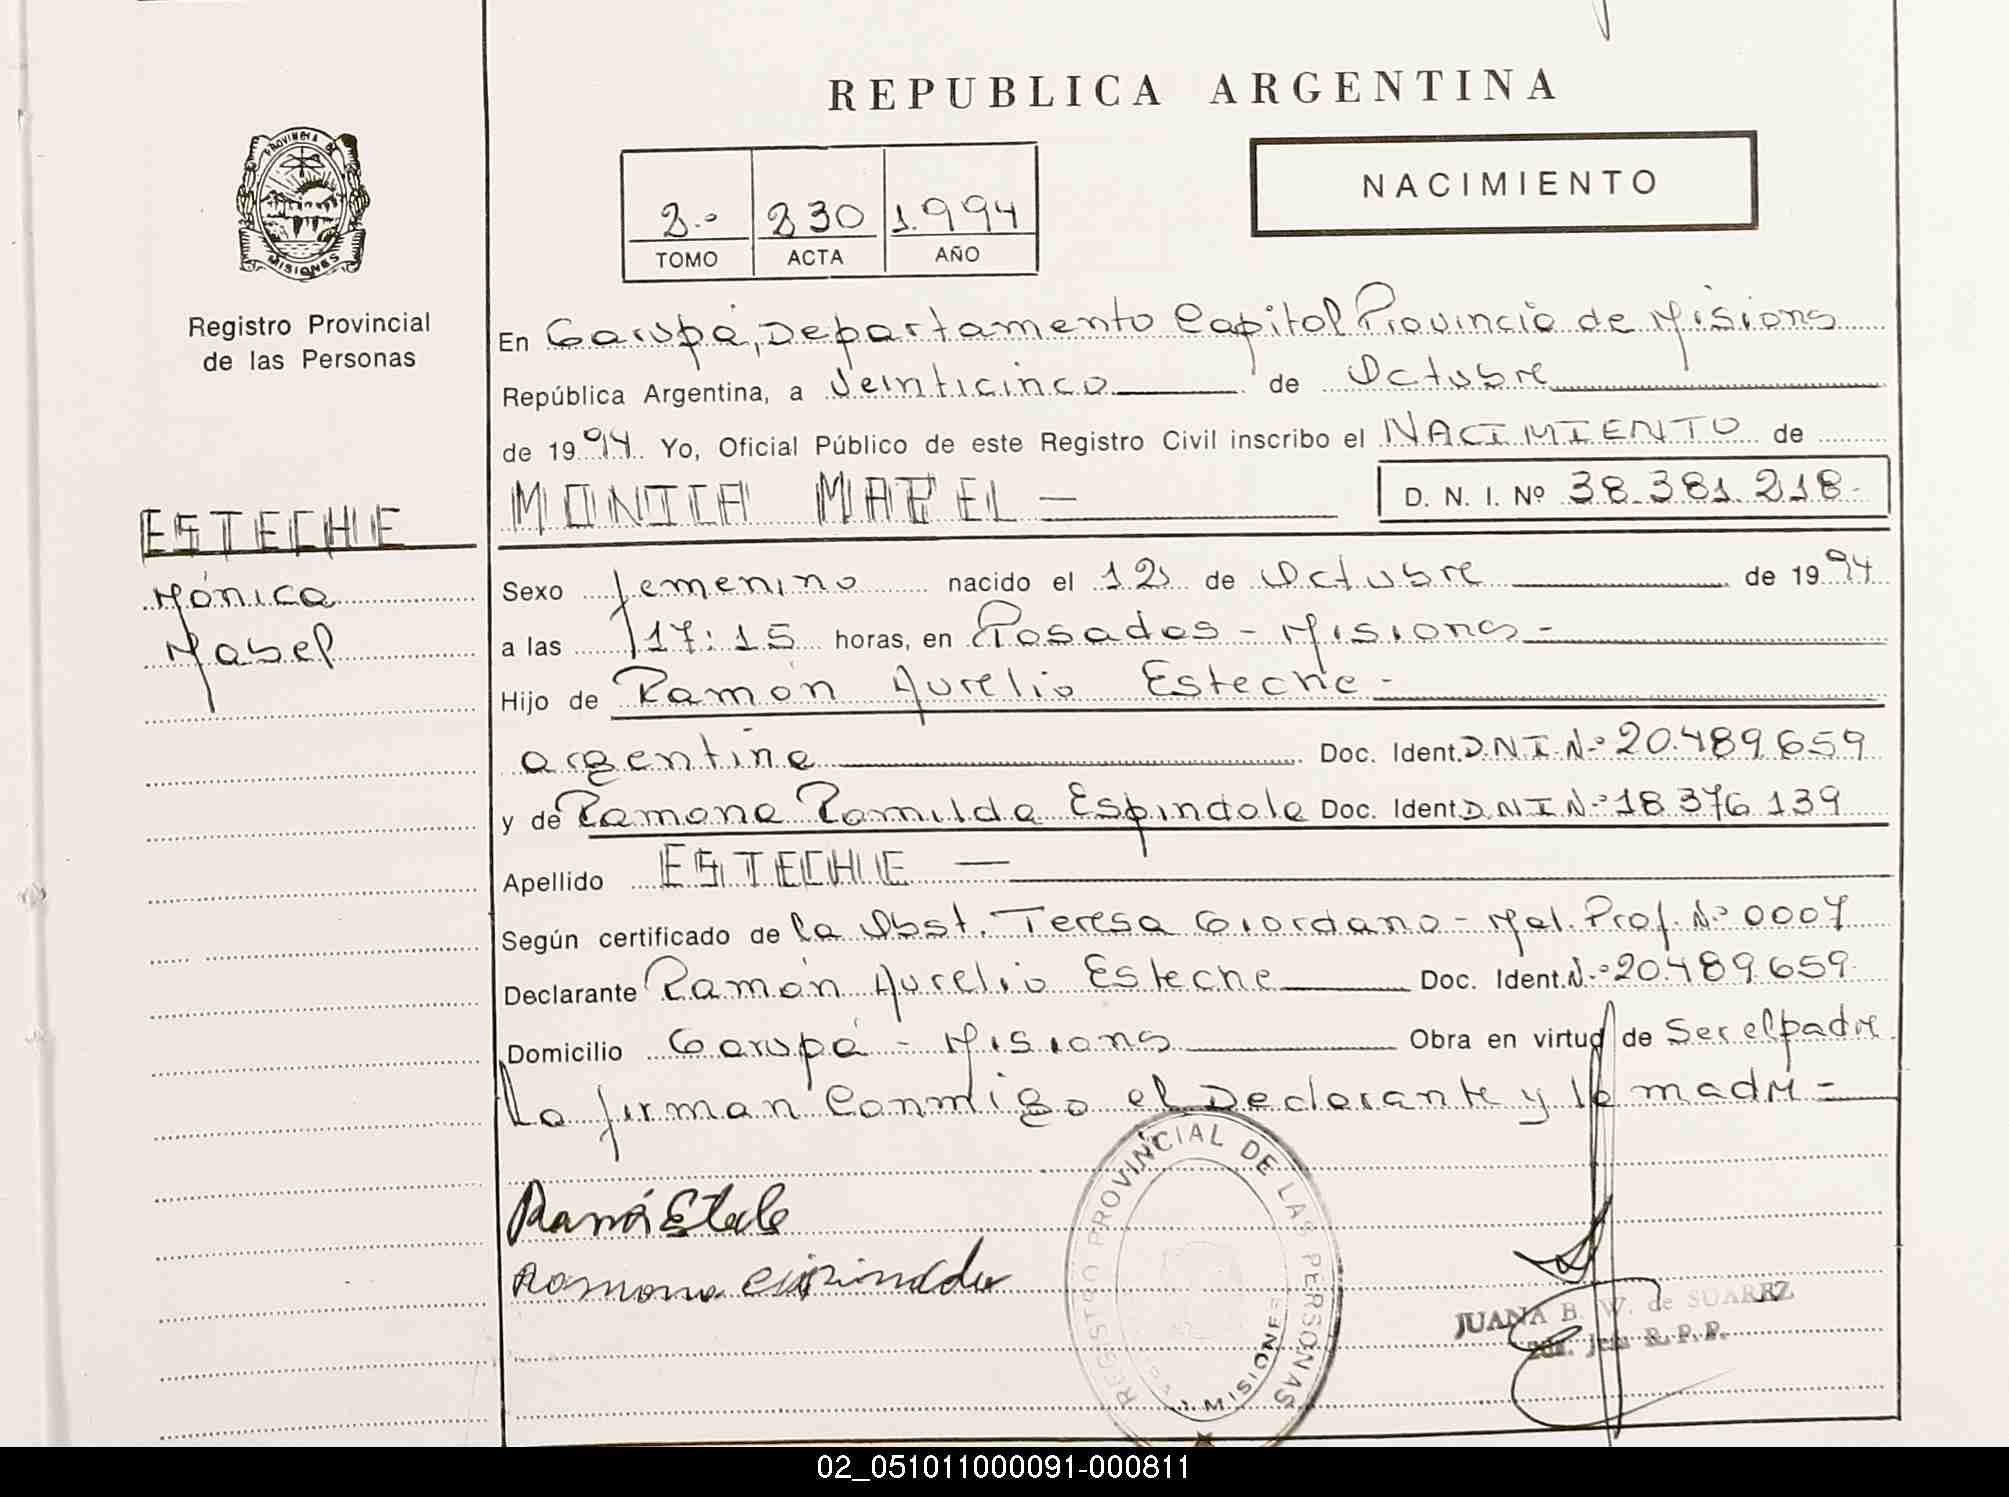 REPUBLICA ARGENTINA
PROVINCIA DE
MISIONES
Registro Provincial
de las Personas
NACIMIENTO
2.º 230 1.994
TOMO ACTA AÑO
En Garupá, Departamento Capital Provincia de Misiones
República Argentina, a Veinticinco de Octubre
de 1994 Yo, Oficial Público de este Registro Civil inscribo el NACIMIENTO de
MONICA MABEL —
D. N. I. Nº 38.381.218-
ESTECHE
Mónica
Mabel
Sexo femenino nacido el 12 de Octubre de 1994
a las 17:15 horas, en Posadas - Misiones -
Hijo de Ramón Aurelio Esteche -
argentina Doc. Ident. D.N.I.N.º 20.489.659
y de Ramona Romilda Espindola Doc. Ident. D.N.I.N.º 18.376.139
Apellido ESTECHE —
Según certificado de la Obst. Teresa Giordano - Mat. Prof. N.º 0007
Declarante Ramón Aurelio Esteche Doc. Ident. N.º 20.489.659
Domicilio Garupá - Misiones Obra en virtud de Ser el padre
La firman Conmigo el Declarante y la madre =
Ramona
REGISTRO PROVINCIAL DE LAS PERSONAS
MISIONES
JUANA B. W. de SUAREZ
Jefa R. P. P.
02_051011000091-000811